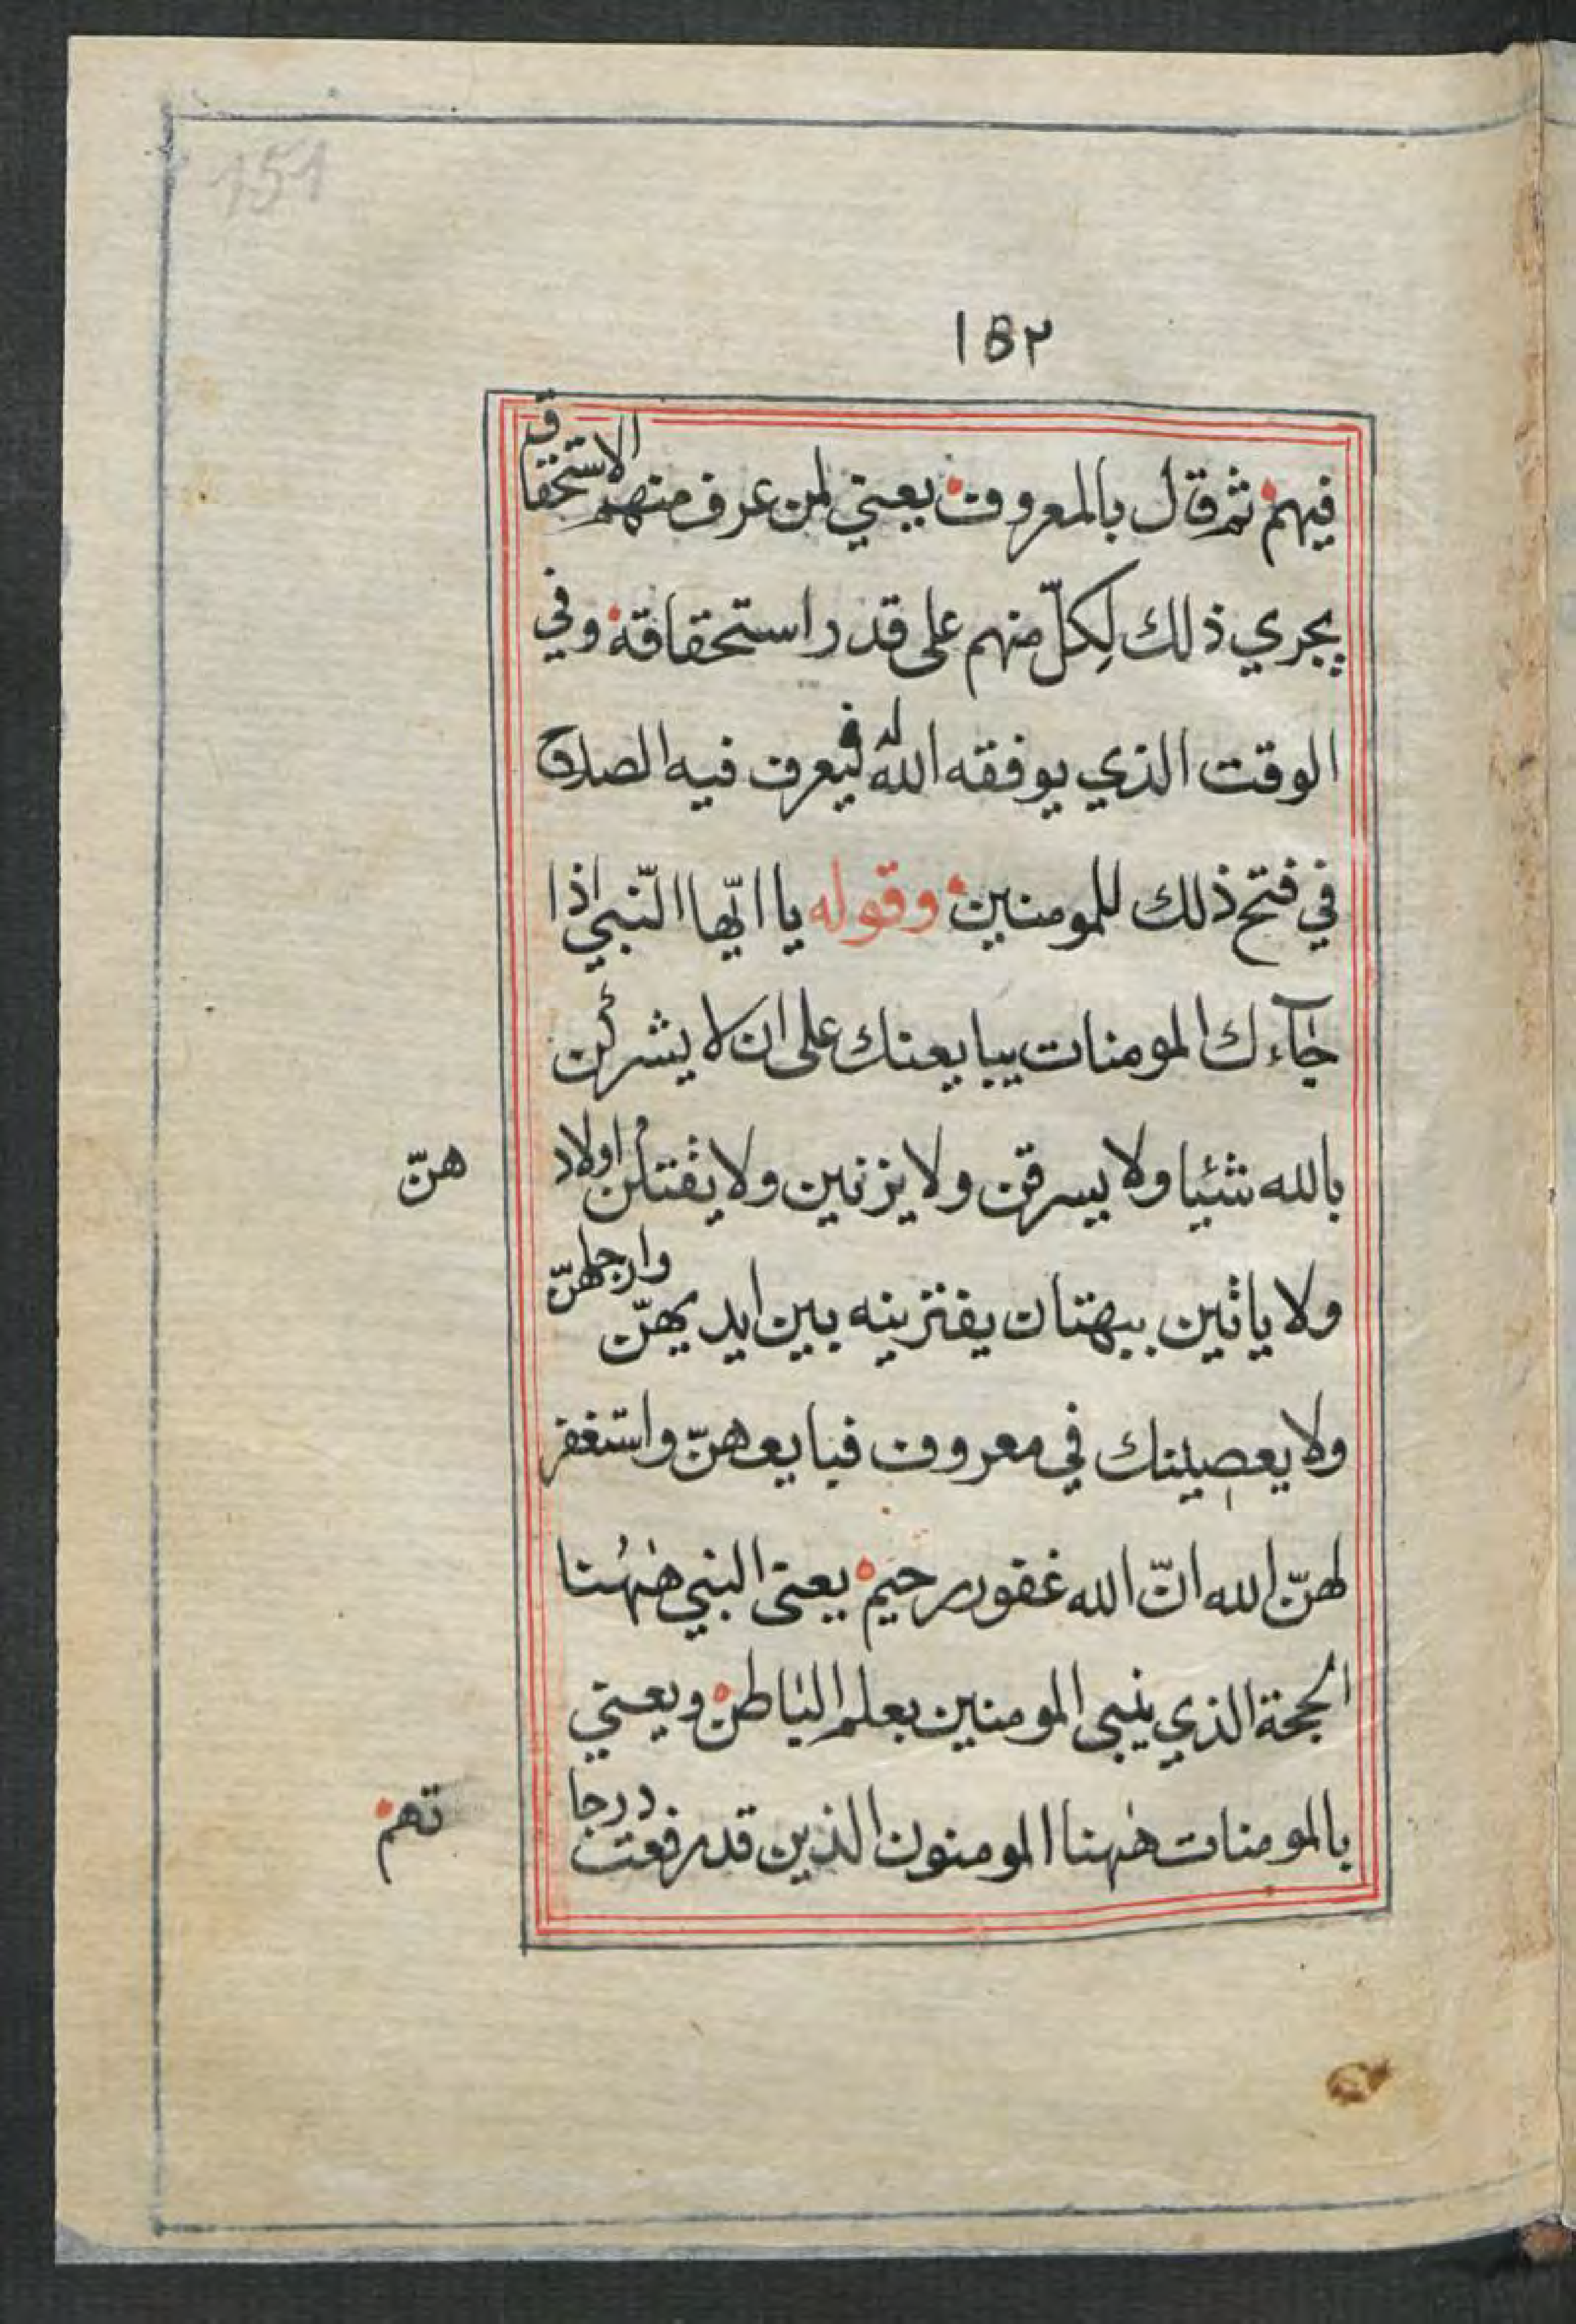 151
١٥٢
فيهم ثم قال بالمعروف يعني لمن عرف منهم الاستحقاق
يجري ذلك لِكلّ منهم على قدر استحقاقه وفي
الوقت الذي يوفقه الله له فيعرف فيه الصلاح
في فتح ذلك للمومنين وقوله يا ايّها النّبي اذا
جآءك المومنات يبايعنك على ان لا يشركن
بالله شئيا ولا يسرقن ولا يزنين ولا يقتلن اولاد هنّ
ولا ياتين ببهتان يفترينه بين ايديهنّ وارجلهنّ
ولا يعصينك في معروف فبايعهنّ واستغفر
لهنّ الله انّ الله غفور رحيم يعني النبي هٰهُنا
الحجة الذي ينبي المومنين بعلم الباطن ويعني
بالمومنات هٰهنا المومنون الذين قد رفعت درجا تهم